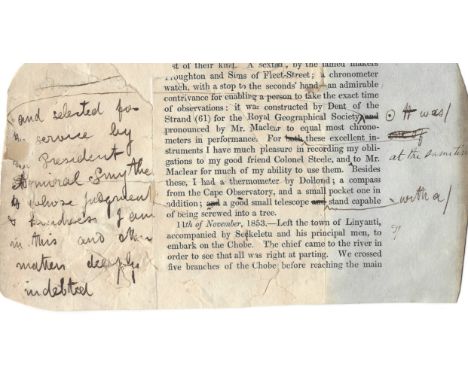 st of their kind. A sextant, by the famed makers
Troughton and Sims of Fleet-Street; a chronometer
watch, with a stop to the seconds' hand—an admirable
contrivance for enabling a person to take the exact time
of observations: it was constructed by Dent of the
Strand (61) for the Royal Geographical Society, and
pronounced by Mr. Maclear to equal most chrono-
meters in performance. For both these excellent in-
struments I have much pleasure in recording my obli-
gations to my good friend Colonel Steele, and to Mr.
Maclear for much of my ability to use them. Besides
these, I had a thermometer by Dollond; a compass
from the Cape Observatory, and a small pocket one in
addition; and a good small telescope and stand capable
of being screwed into a tree.
11th of November, 1853.—Left the town of Linyanti,
accompanied by Seckeletu and his principal men, to
embark on the Chobe. The chief came to the river in
order to see that all was right at parting. We crossed
five branches of the Chobe before reaching the main
and selected for
service by
President
Admiral Smythe
whose judgment
& kindness I am
in this and other
matters deeply
indebted
It was/
at the same time
with a/